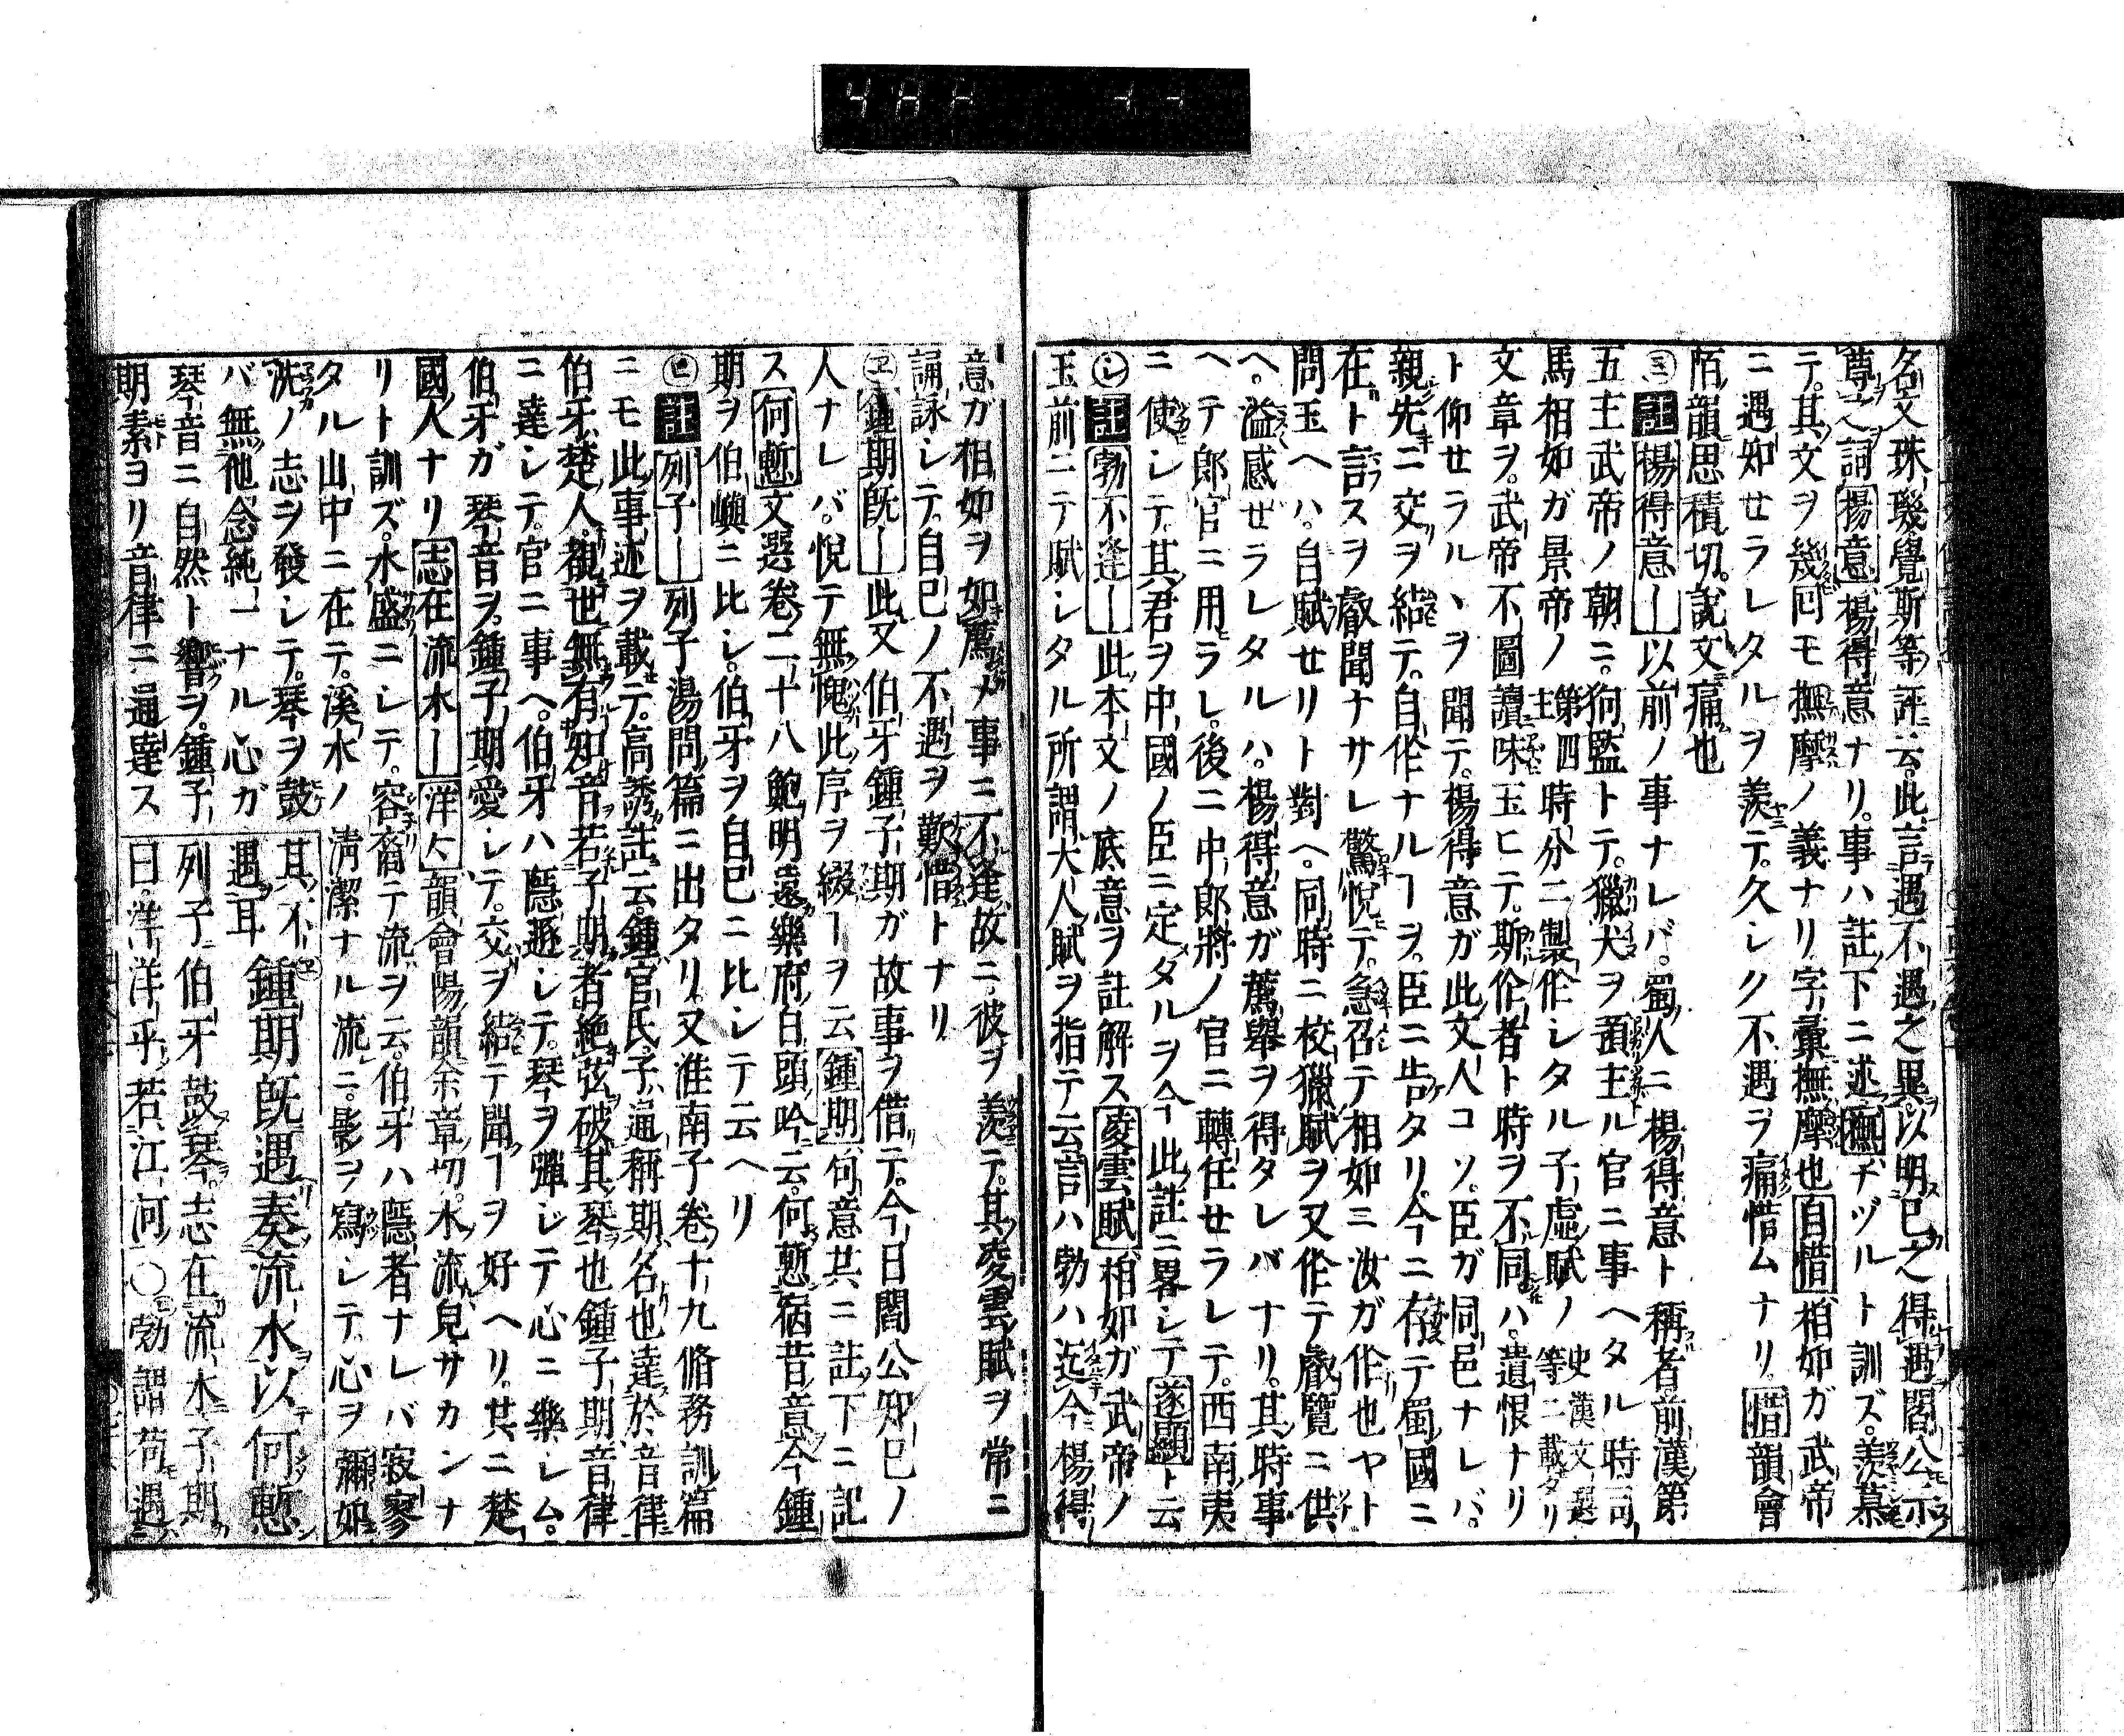 名文珠璣覺斯等評云此言遇不遇之異以明己之得遇閻公示
尊之詞楊意楊得意ナリ事ハ註下ニ述撫ナヅルト訓ズ羨慕
テ其文ヲ幾回モ撫摩ノ義ナリ字彙撫摩也自惜相如ガ武帝
ニ遇知セラレタルヲ羨テ久シク不遇ヲ痛惜ムナリ惜韻會
陌韻思積切說文痛也
㊂註楊得意―以前ノ事ナレバ蜀人ニ楊得意ト稱者前漢第
五主武帝ノ朝ニ狗監トテ獵犬ヲ預主ル官ニ事ヘタル時司
馬相如ガ景帝ノ第四主時分ニ製作シタル子虛賦ノ史漢文選等ニ載タリ
文章ヲ武帝不圖讀味玉ヒテ斯作者ト時ヲ不同ハ遺恨ナリ
ト仰セラルヽヲ聞テ楊得意ガ此文人コソ臣ガ同邑ナレバ
親先ニ交ヲ結テ自作ナルヿヲ臣ニ告タリ今ニ存テ蜀國ニ
在ト言スヲ叡聞ナサレ驚悅テ急召テ相如ニ汝ガ作也ヤト
問玉ヘハ自賦セリト對ヘ同時ニ校獵賦ヲ又作テ叡覽ニ供
ヘ溢感セラレタルハ楊得意ガ薦舉ヲ得タレバナリ其時事
ヘテ郎官ニ用ラレ後ニ中郎將ノ官ニ轉任セラレテ西南夷
ニ使シテ其君ヲ中國ノ臣ニ定タルヲ今此註ニ畧シテ遂顯ト云
㋛註勃不逢―此本文ノ底意ヲ註解ス凌雲賦相如ガ武帝ノ
玉前ニテ賦シタル所謂大人賦ヲ指テ云言ハ勃ハ迄今楊得
意ガ相如ヲ如薦メ事ニ不逢故ニ彼ヲ羨テ其凌雲賦ヲ常ニ
誦詠シテ自己ノ不遇ヲ歎惜トナリ
㋓鍾期既―此又伯牙鍾子期ガ故事ヲ借テ今日閻公知己ノ
人ナレバ悅テ無愧此序ヲ綴ヿヲ云鍾期句意共ニ註下ニ記
ス何慙文選卷二十八鮑明遠樂府白頭吟云何慙宿昔意今鍾
期ヲ伯嶼ニ比シ伯牙ヲ自己ニ比シテ云ヘリ
㋪註列子―列子湯問篇ニ出タリ又淮南子卷十九脩務訓篇
ニモ此事迹ヲ載テ高誘註云鍾官氏子通稱期名也達於音律
伯牙楚人覩世無有知音若子期者絶弦破其琴也鍾子期音律
ニ達シテ官ニ事ヘ伯牙ハ隱遯シテ琴ヲ彈ジテ心ニ樂シム
伯牙ガ琴音ヲ鍾子期愛シテ交ヲ結テ聞ヿヲ好ヘリ其ニ楚
國人ナリ志在流水―洋々韻會陽韻余章切水流皃サカンナ
リト訓ズ水盛ニシテ容裔テ流ヲ云伯牙ハ隱者ナレバ寂寥
タル山中ニ在テ溪水ノ清潔ナル流ニ影ヲ寫シテ心ヲ彌如
洗ノ志ヲ發シテ琴ヲ鼓
バ無他念純一ナル心ガ
琴音ニ自然ト響ヲ鍾子
期素ヨリ音律ニ通達ス
其不
遇耳鍾期既遇奏流水以何慙
列子伯牙鼓琴志在流水子期
曰洋洋乎若江河〇勃謂荷遇